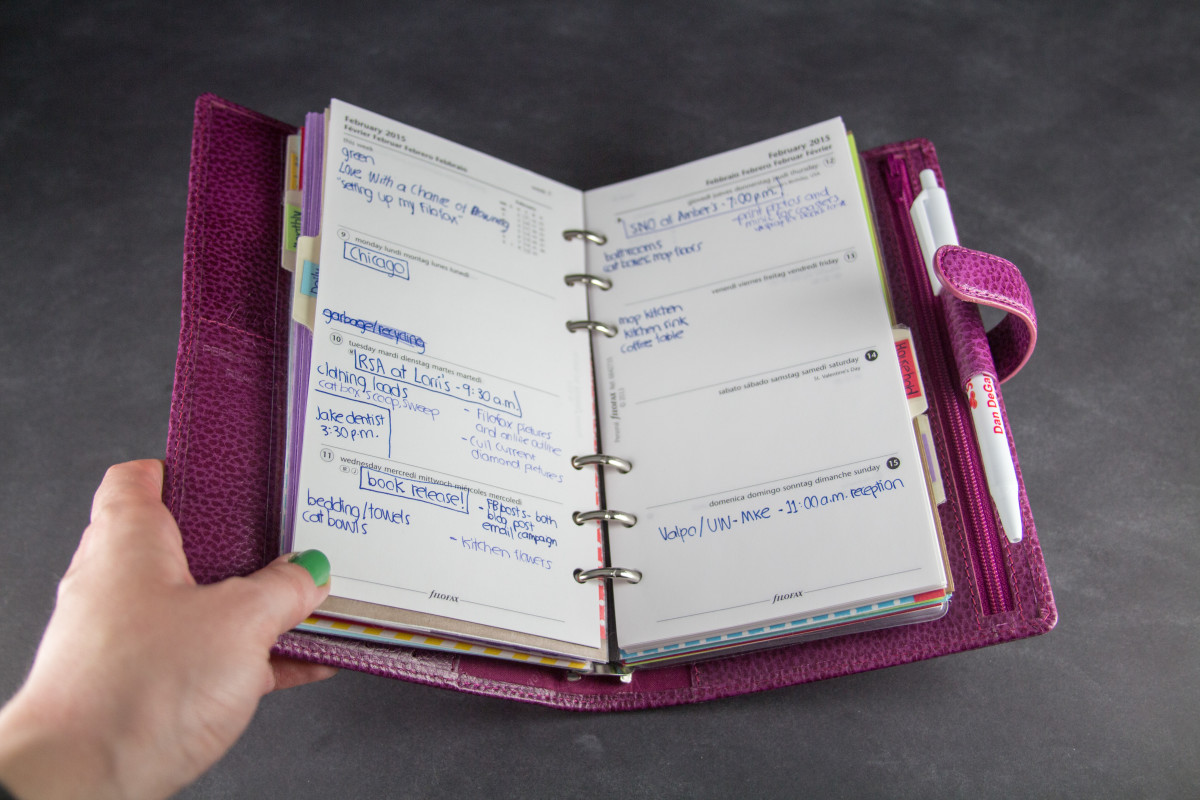 February 2015
Février Februar Febrero Febbraio
this week
week 7
green
Love With a Chance of Drowning
"setting up my Filofax"
9 monday lundi montag lunes lunedì
Chicago
garbage/recycling
10 tuesday mardi dienstag martes martedì
RSA at Lorri's - 9:30 a.m.
clothing loads
cat box scoop, sweep
Jake dentist
3:30 p.m.
- Filofax pictures
and online
- cull current
diamond pictures
11 wednesday mercredi mittwoch miércoles mercoledì
book release!
bedding/towels
cat bowls
- FB posts - both
blog post
email campaign
- kitchen flowers
FILOFAX
February 2015
Febbraio Febrero Februar Février
giovedì jueves donnerstag jeudi thursday 12
SNO at Amber's - 7:00 p.m.
- print photos and
for coasters
bathrooms
cat boxes, mop floors
venerdì viernes freitag vendredi friday 13
mop kitchen
kitchen sink
coffee table
sabato sábado samstag samedi saturday 14
St. Valentine's Day
domenica domingo sonntag dimanche sunday 15
Valpo/UW-Mke - 11:00 a.m. reception
FILOFAX
Daily
Hospital
Dan DeGa